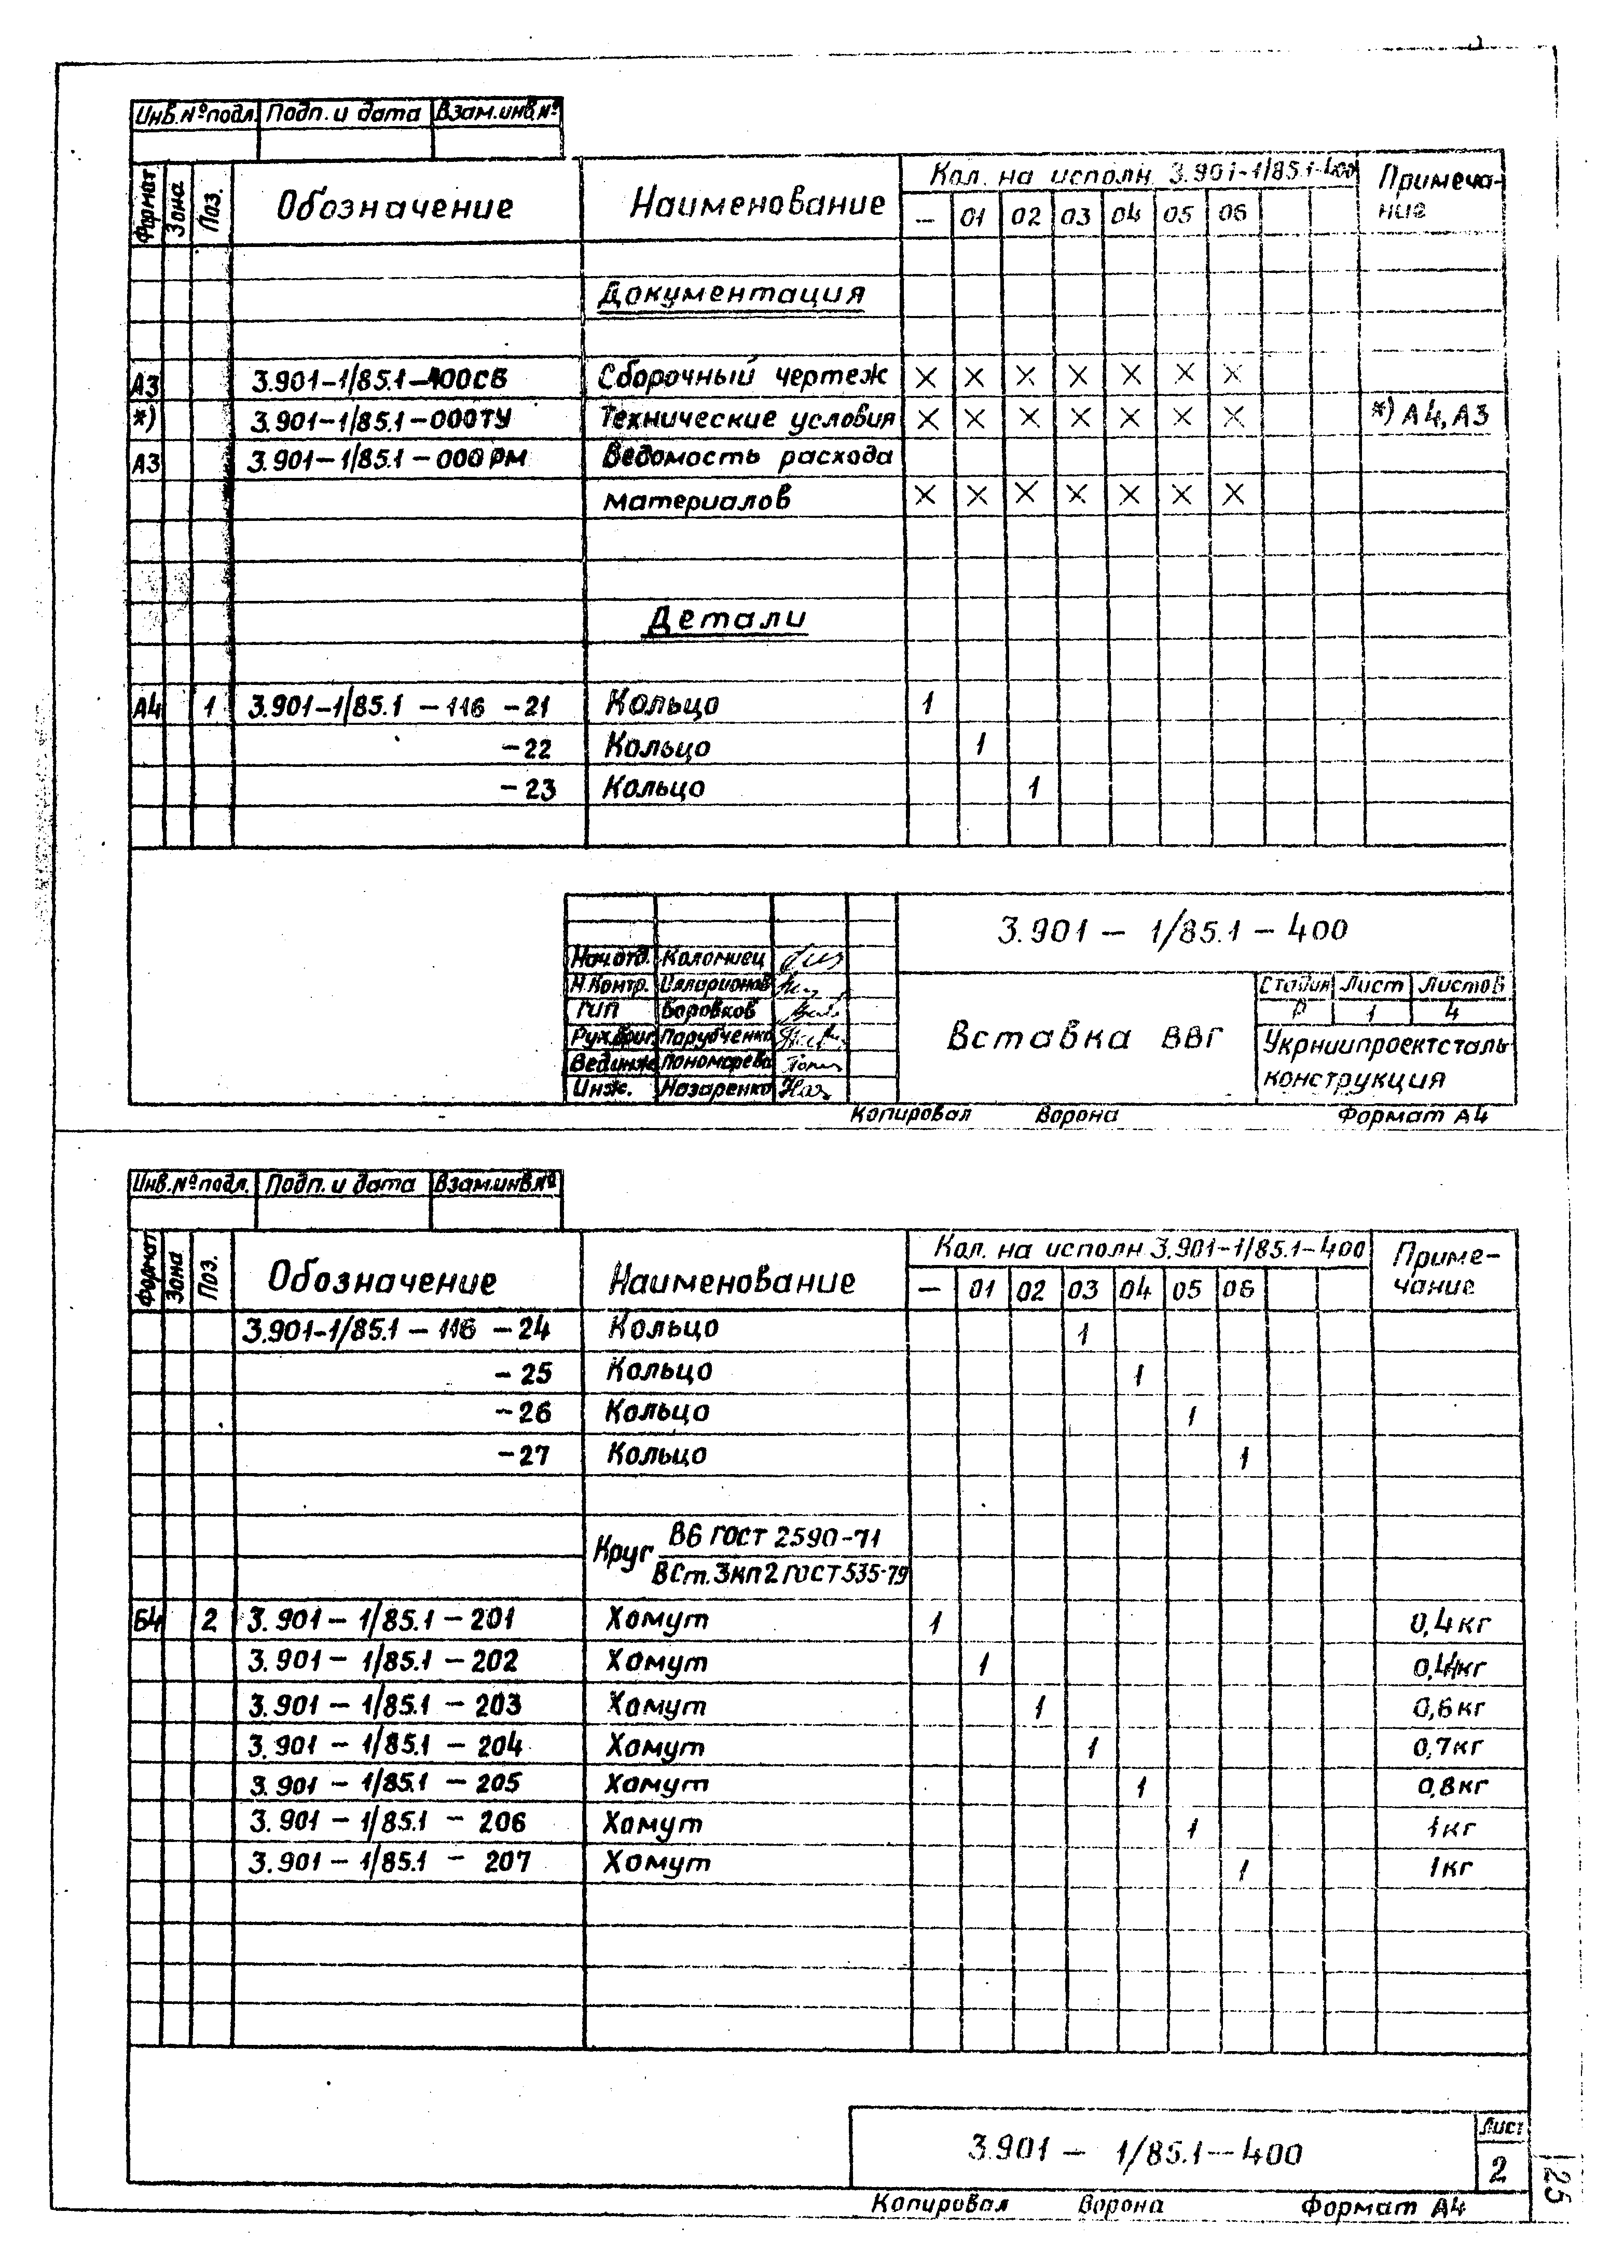 Инв.№подл. Подп. и дата Взам.инв.№
Формат Зона Поз. Обозначение Наименование Кол. на исполн. 3.901-1/85.1-400 Примеча-
ние
— 01 02 03 04 05 06
Документация
А3 3.901-1/85.1-400СБ Сборочный чертеж × × × × × × ×
*) 3.901-1/85.1-000ТУ Технические условия × × × × × × × *) А4, А3
А3 3.901-1/85.1-000РМ Ведомость расхода
материалов × × × × × × ×
Детали
А4 1 3.901-1/85.1-116-21 Кольцо 1
-22 Кольцо 1
-23 Кольцо 1
3.901-1/85.1-400
Нач.отд. Коломиец
Н.Контр. Илларионов
ГИП Боровков
Рук.бриг. Парубченко
Вед.инж. Пономарева
Инж. Назаренко
Вставка ВВГ
Стадия Лист Листов
Р 1 4
Укрниипроектсталь-
конструкция
Копировал Ворона Формат А4
Инв.№подл. Подп. и дата Взам.инв.№
Формат Зона Поз. Обозначение Наименование Кол. на исполн 3.901-1/85.1-400 Приме-
чание
— 01 02 03 04 05 06
3.901-1/85.1-116-24 Кольцо 1
-25 Кольцо 1
-26 Кольцо 1
-27 Кольцо 1
Круг В6 ГОСТ 2590-71
ВСт.3кп2 ГОСТ 535-79
Б4 2 3.901-1/85.1-201 Хомут 1 0,4кг
3.901-1/85.1-202 Хомут 1 0,4кг
3.901-1/85.1-203 Хомут 1 0,6кг
3.901-1/85.1-204 Хомут 1 0,7кг
3.901-1/85.1-205 Хомут 1 0,8кг
3.901-1/85.1-206 Хомут 1 1кг
3.901-1/85.1-207 Хомут 1 1кг
3.901-1/85.1-400
Лист
2
Копировал Ворона Формат А4
25